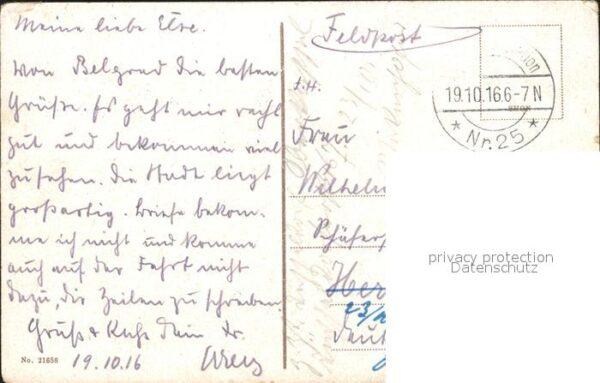 Meine liebe Else.
Von Belgrad die besten
Grüße. Es geht mir recht
gut und bekommen viel
zu sehen. Die Stadt liegt
großartig. Briefe bekom-
me ich nicht und komme
auch auf der Fahrt nicht
dazu, dir Zeilen zu schreiben
Gruß & Kuß Dein dr.
19.10.16
No. 21656
Feldpost
19.10.16.6-7N
* Nr. 25 *
S.H.
Frau
Wilhelm
Schäfer
Her
23/
Deut
privacy protection
Datenschutz